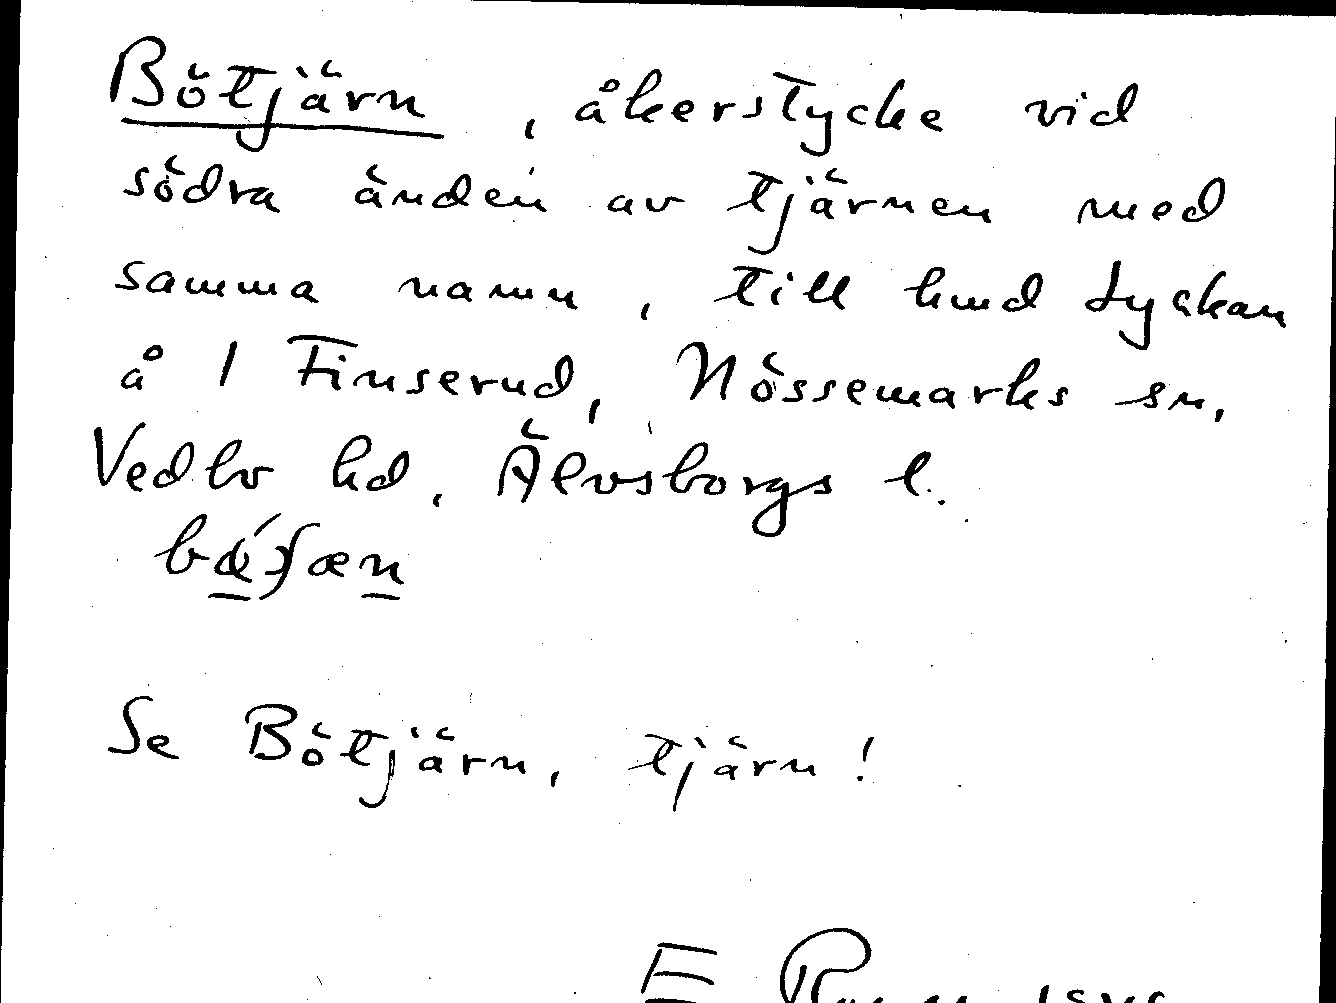 Bötjärn, åkerstycke vid
södra änden av tjärnen med
samma namn, till lmd Lyckan
å 1 Finserud, Nössemarks sn,
Vedbo hd, Älvsborgs l.
Se Bötjärn, tjärn!
E